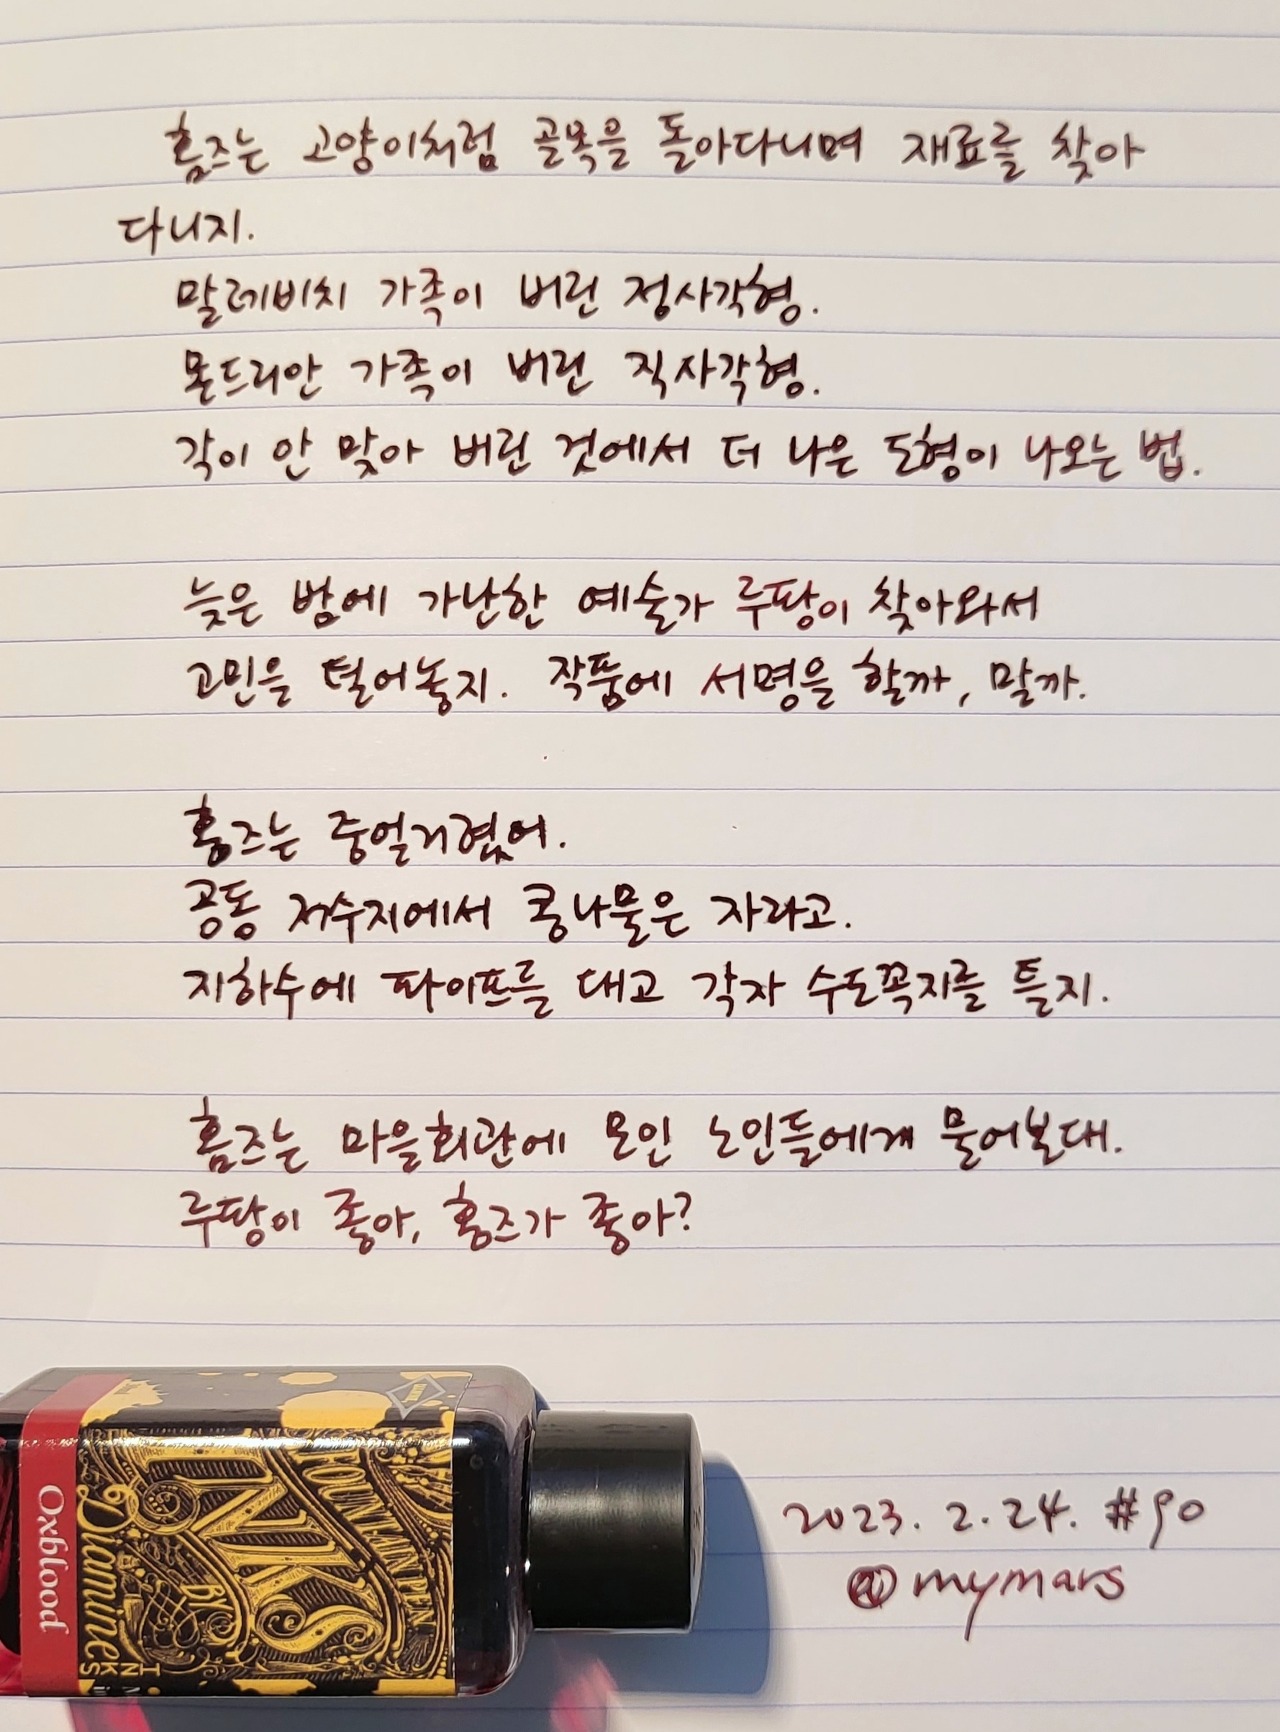 홈즈는 고양이처럼 골목을 돌아다니며 재료를 찾아
다니지.
말레비치 가족이 버린 정사각형.
몬드리안 가족이 버린 직사각형.
각이 안 맞아 버린 것에서 더 나은 도형이 나오는 법.
늦은 밤에 가난한 예술가 루팡이 찾아와서
고민을 털어놓지. 작품에 서명을 할까, 말까.
홈즈는 중얼거렸어.
공동 저수지에서 콩나물은 자라고.
지하수에 파이프를 대고 각자 수도꼭지를 틀지.
홈즈는 마을회관에 모인 노인들에게 물어본대.
루팡이 좋아, 홈즈가 좋아?
FOUNTAIN PEN
INKS
BY
Diamine
Oxblood
2023. 2. 24. #90
@mymars